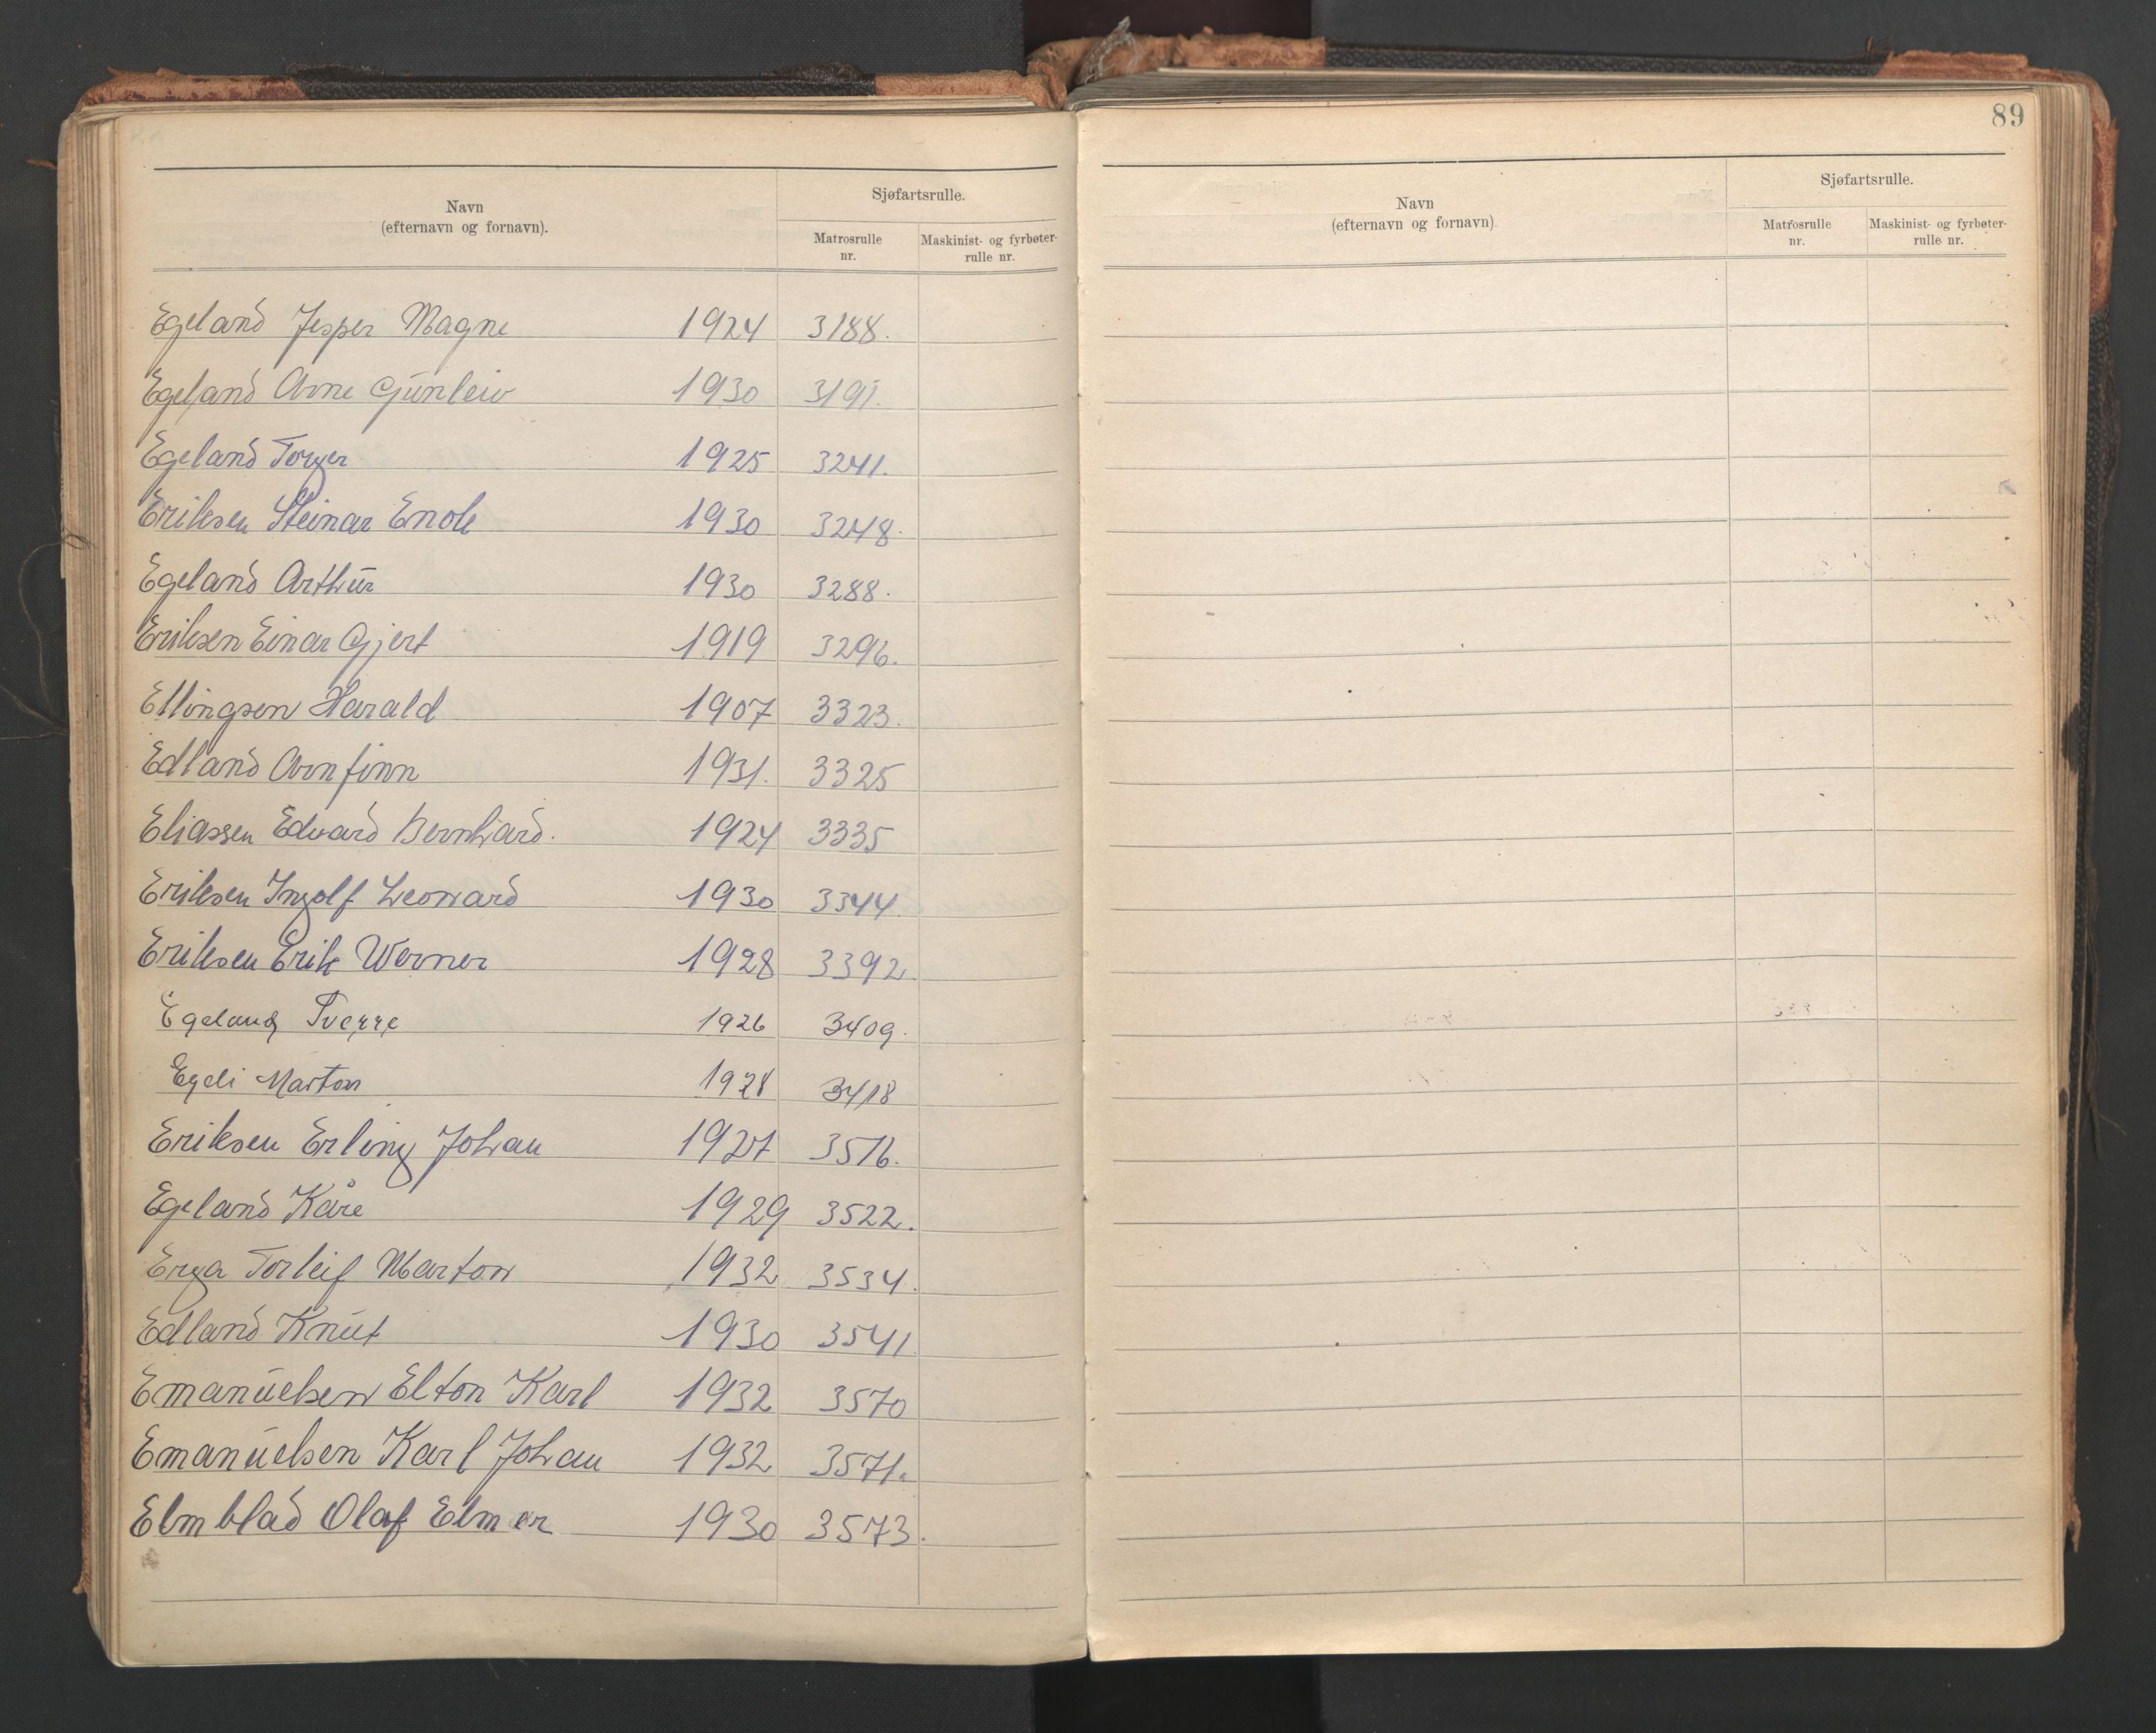 Navn
(efternavn og fornavn).
Sjøfartsrulle.
Matrosrulle
nr.
Maskinist- og fyrbøter-
rulle nr.
Egeland Jesper Magne 1924 3188.
Egeland Arne Gunleiv 1930 3191.
Egeland Torger 1925 3241.
Eriksen Steinar Enok 1930 3248.
Egeland Arthur 1930 3288.
Eriksen Einar Gjert 1919 3296.
Ellingsen Harald 1907 3323.
Edland Arnfinn 1931. 3325
Eliassen Edvard Bernhard. 1924 3335
Eriksen Ingolf Leonard 1930 3344
Eriksen Erik Werner 1928 3392.
Egeland Sverre 1926 3409.
Egeli Marton 1928 3418
Eriksen Erling Johan 1927 3516.
Egeland Kåre 1929 3522.
Erga Torleif Marton 1932 3534.
Edland Knut 1930 3541
Emanuelsen Elton Karl 1932 3570
Emanuelsen Karl Johan 1932 3571.
Elmblad Olaf Elmer 1930 3573.
89
Navn
(efternavn og fornavn)
Sjøfartsrulle.
Matrosrulle
nr.
Maskinist- og fyrbøter-
rulle nr.